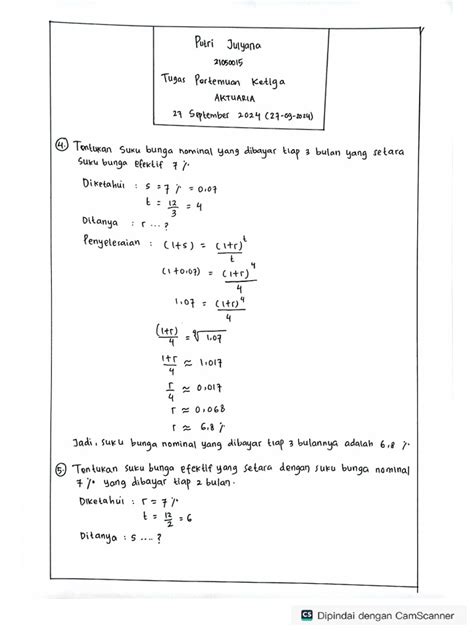 Putri Julyana
21050015
Tugas Pertemuan Ketiga
AKTUARIA
27 September 2024 (27-09-2024)
4. Tentukan suku bunga nominal yang dibayar tiap 3 bulan yang setara
suku bunga efektif 7 %
Diketahui : s = 7 % = 0.07
t = 12/3 = 4
Ditanya : r ... ?
Penyelesaian : (1+s) = (1+r)^t/t
(1+0.07) = (1+r)^4/4
1.07 = (1+r)^4/4
(1+r)/4 = ⁴√1.07
1+r/4 ≈ 1.017
r/4 ≈ 0.017
r ≈ 0.068
r ≈ 6.8 %
Jadi, suku bunga nominal yang dibayar tiap 3 bulannya adalah 6.8 %.
5. Tentukan suku bunga efektif yang setara dengan suku bunga nominal
7 % yang dibayar tiap 2 bulan.
Diketahui : r = 7 %
t = 12/2 = 6
Ditanya : s .... ?
CS Dipindai dengan CamScanner